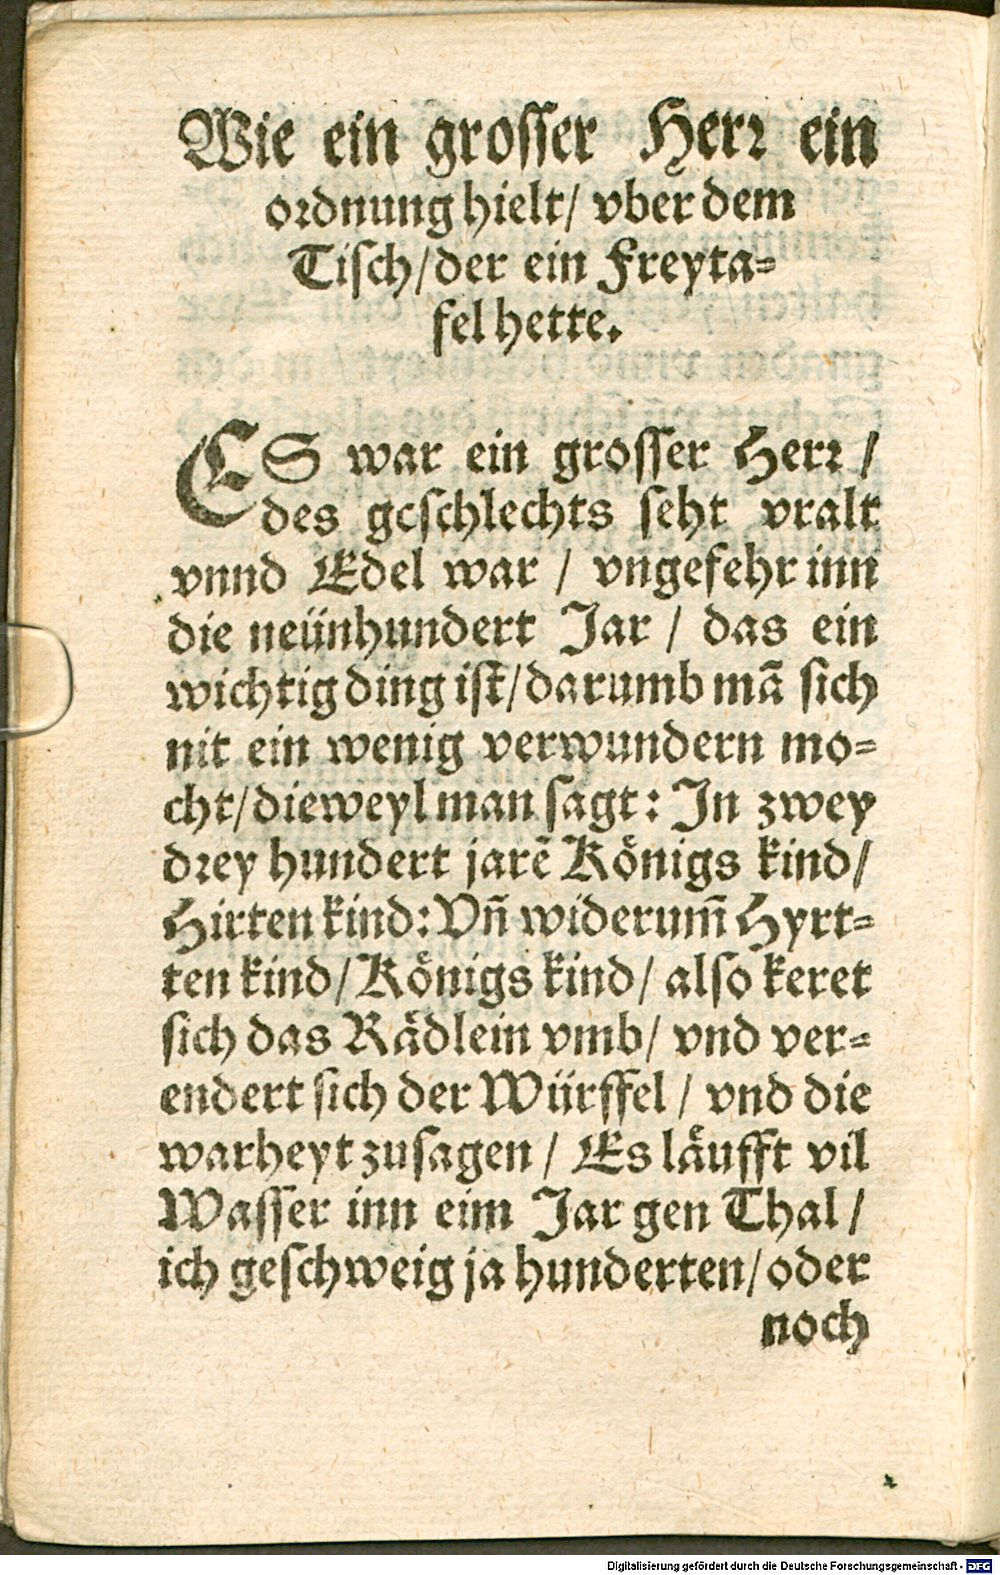 Wie ein grosser Herr ein
ordnung hielt/ vber dem
Tisch/der ein Freyta-
fel hette.
ES war ein grosser Herr /
des geschlechts seht vralt
vnnd Edel war / vngefehr inn
die neünhundert Jar / das ein
wichtig ding ist/darumb mã sich
nit ein wenig verwundern mo-
cht/dieweyl man sagt: In zwey
drey hundert jarẽ Königs kind/
Hirten kind: Vñ widerum̃ Hyrt-
ten kind/Königs kind/ also keret
sich das Rädlein vmb/ vnd ver-
endert sich der Würffel / vnd die
warheyt zusagen / Es läufft vil
Wasser inn eim Jar gen Thal /
ich geschweig ja hunderten/oder
noch
Digitalisierung gefördert durch die Deutsche Forschungsgemeinschaft - DFG